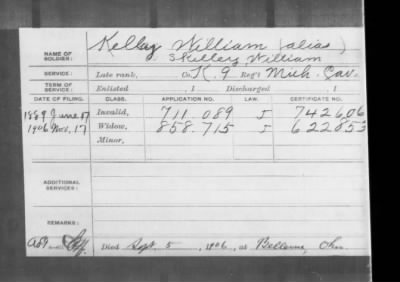 Kelley William (alias)
NAME OF SOLDIER:
Skellery William
SERVICE: Late rank, Co. K, 9 Reg't Mich. Cav.
TERM OF SERVICE: Enlisted , 1 Discharged , 1
DATE OF FILING. CLASS. APPLICATION NO. LAW. CERTIFICATE NO.
1889 June 17 Invalid, 711.089 J 742606
1906 Nov. 17 Widow, 858.715 J 622853
Minor,
ADDITIONAL SERVICES:
REMARKS:
Died Sept. 5, 1906, at Bellevue, Ohio